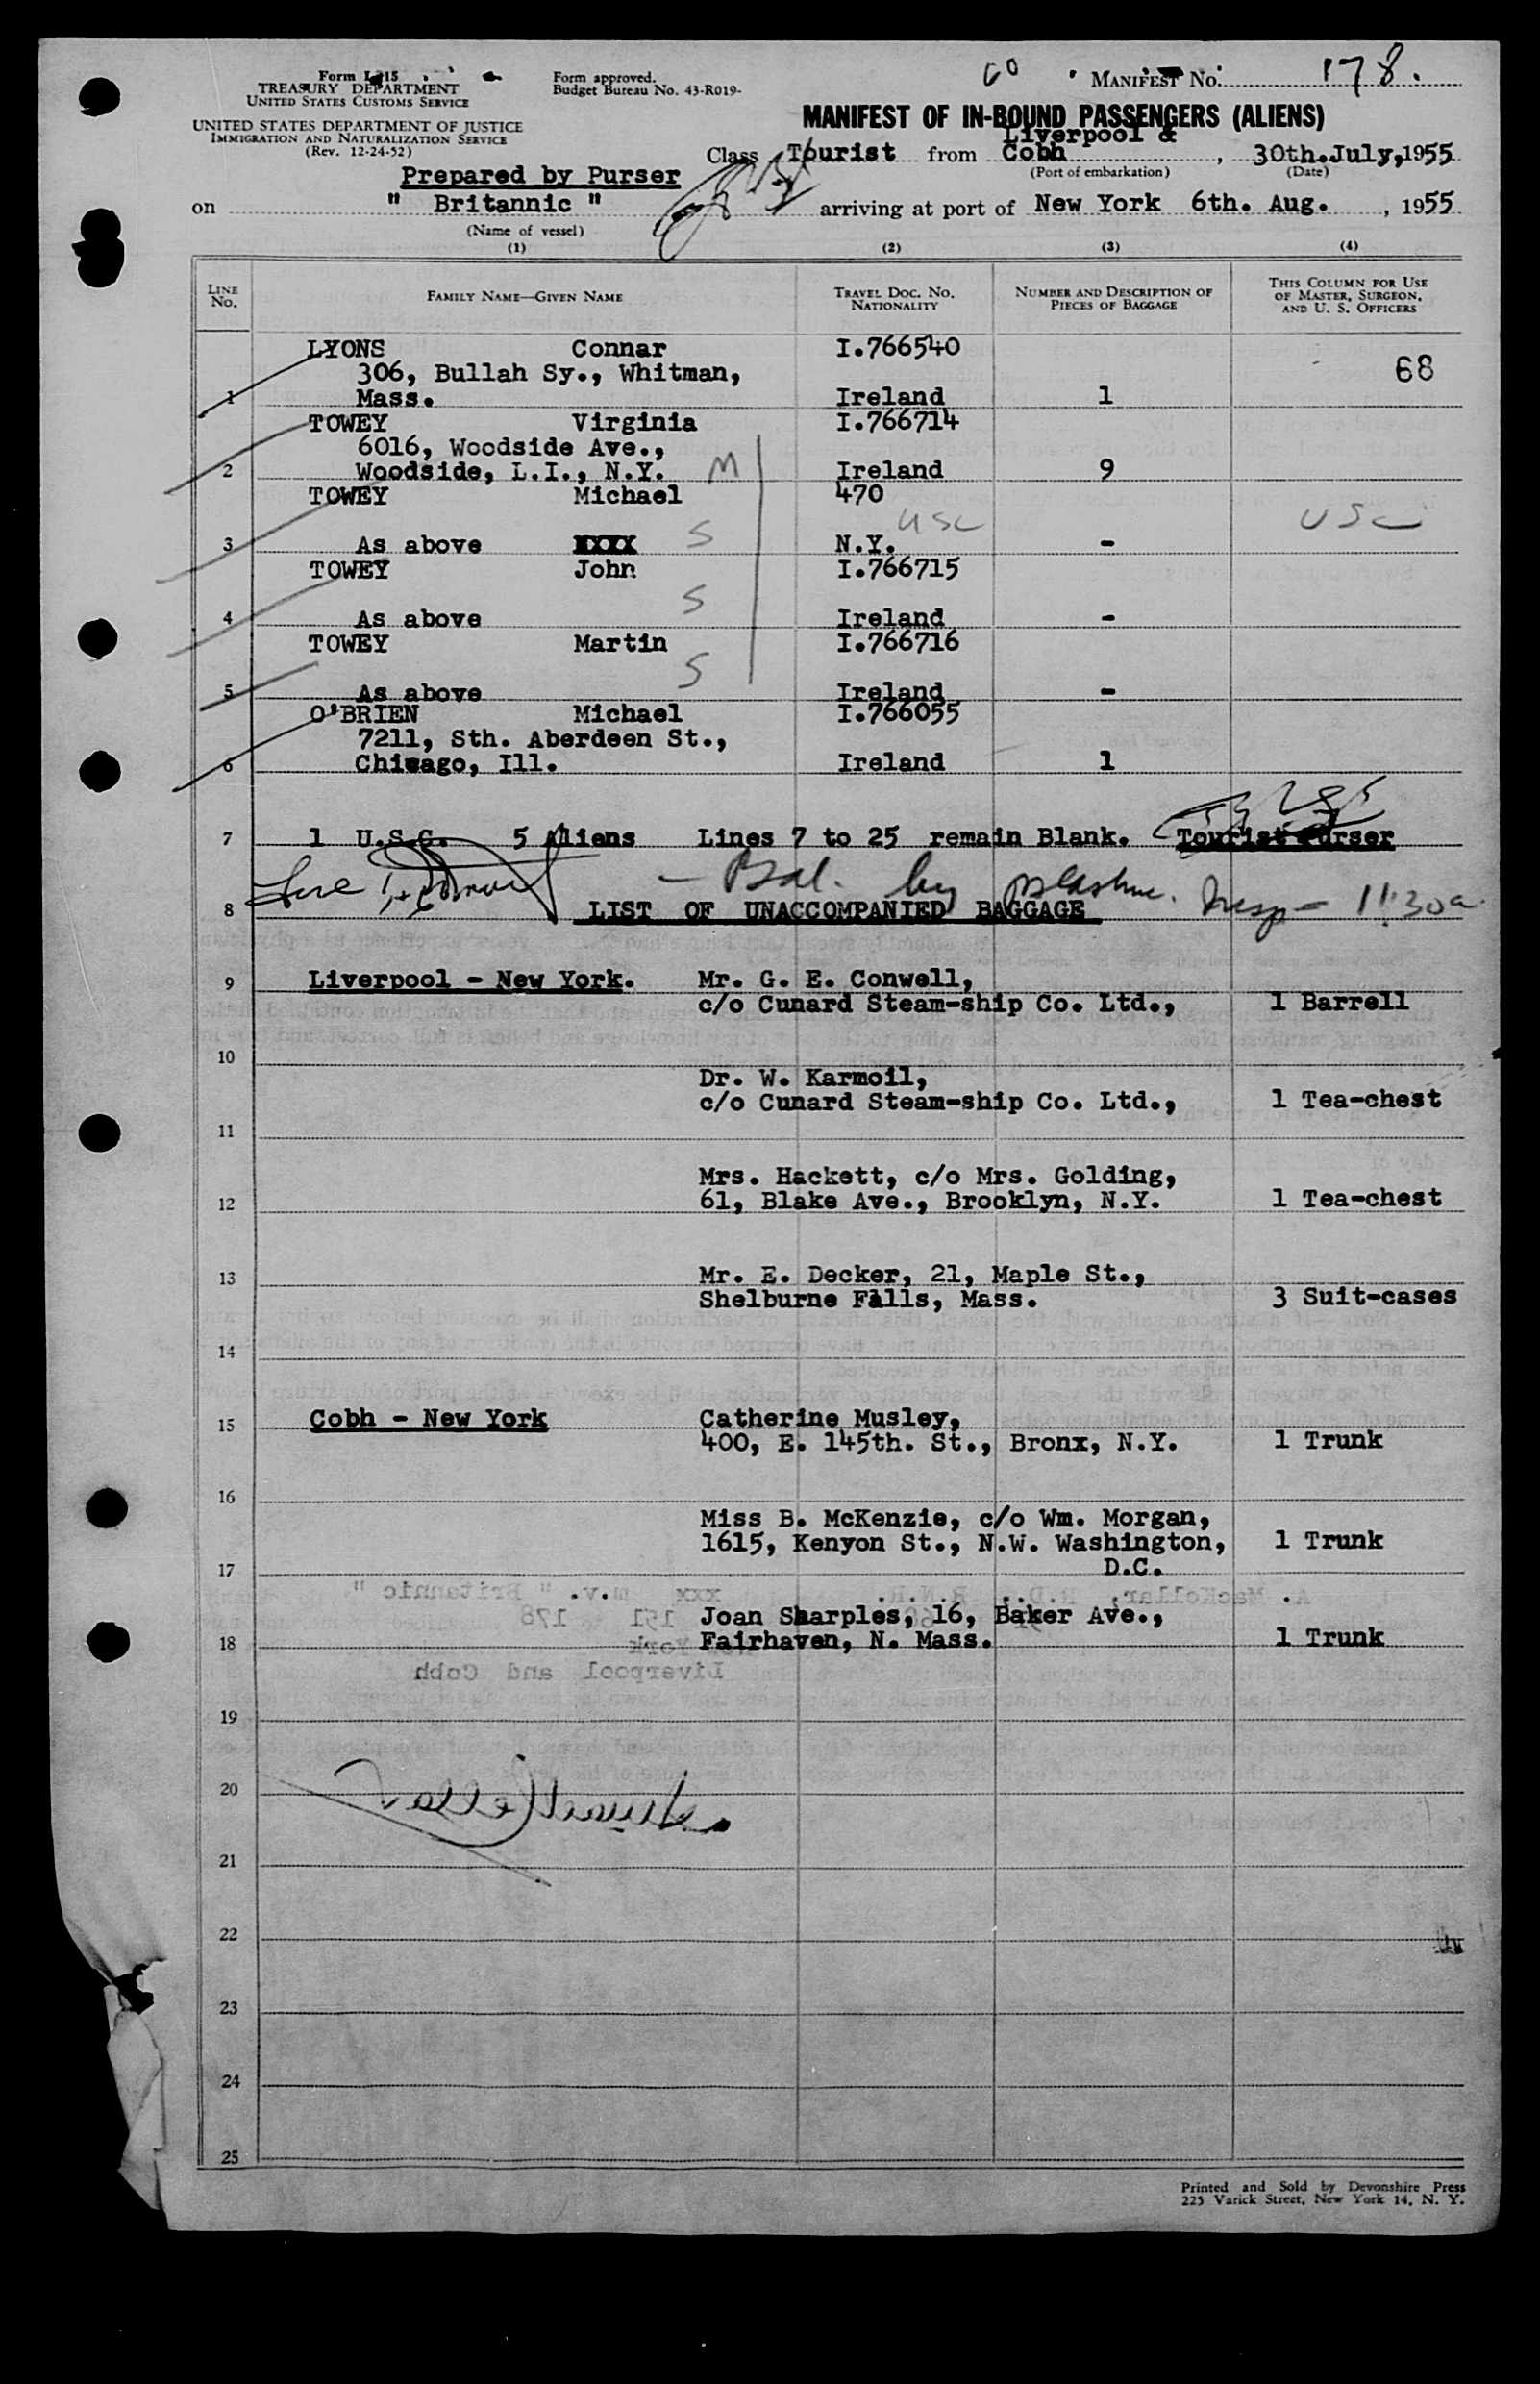 Form I-415
TREASURY DEPARTMENT
UNITED STATES CUSTOMS SERVICE
UNITED STATES DEPARTMENT OF JUSTICE
IMMIGRATION AND NATURALIZATION SERVICE
(Rev. 12-24-52)
Form approved.
Budget Bureau No. 43-R019-
60
MANIFEST No. 178.
MANIFEST OF IN-BOUND PASSENGERS (ALIENS)
Liverpool &
Class Tourist from Cobh, 30th.July,1955
(Port of embarkation) (Date)
Prepared by Purser
on " Britannic " arriving at port of New York 6th. Aug., 1955
(Name of vessel)
(1) (2) (3) (4)
LINE No. FAMILY NAME—GIVEN NAME TRAVEL DOC. No. NATIONALITY NUMBER AND DESCRIPTION OF PIECES OF BAGGAGE THIS COLUMN FOR USE OF MASTER, SURGEON, AND U. S. OFFICERS
LYONS Connar I.766540
306, Bullah Sy., Whitman, 68
1 Mass. Ireland 1
TOWEY Virginia I.766714
6016, Woodside Ave.,
2 Woodside, L.I., N.Y. M Ireland 9
TOWEY Michael 470
USC USC
3 As above XXXX S N.Y. -
TOWEY John I.766715
S
4 As above Ireland -
TOWEY Martin I.766716
S
5 As above Ireland -
O'BRIEN Michael I.766055
7211, Sth. Aberdeen St.,
6 Chicago, Ill. Ireland 1
7 1 U.S.C. 5 Aliens Lines 7 to 25 remain Blank. Tourist Purser
- Bal. by 11:30a
8 LIST OF UNACCOMPANIED BAGGAGE
9 Liverpool - New York. Mr. G. E. Conwell,
c/o Cunard Steam-ship Co. Ltd., 1 Barrell
10
Dr. W. Karmoil,
c/o Cunard Steam-ship Co. Ltd., 1 Tea-chest
11
Mrs. Hackett, c/o Mrs. Golding,
12 61, Blake Ave., Brooklyn, N.Y. 1 Tea-chest
13 Mr. E. Decker, 21, Maple St.,
Shelburne Falls, Mass. 3 Suit-cases
14
15 Cobh - New York Catherine Musley,
400, E. 145th. St., Bronx, N.Y. 1 Trunk
16
Miss B. McKenzie, c/o Wm. Morgan,
1615, Kenyon St., N.W. Washington, 1 Trunk
17 D.C.
A. MacKellar, M.D., R.N.R. xxx m.v. " Britannic "
151 178
Joan Sharples, 16, Baker Ave.,
18 Fairhaven, N. Mass. 1 Trunk
New York
Liverpool and Cobh
19
20
21
22
23
24
25
Printed and Sold by Devonshire Press
225 Varick Street, New York 14, N. Y.